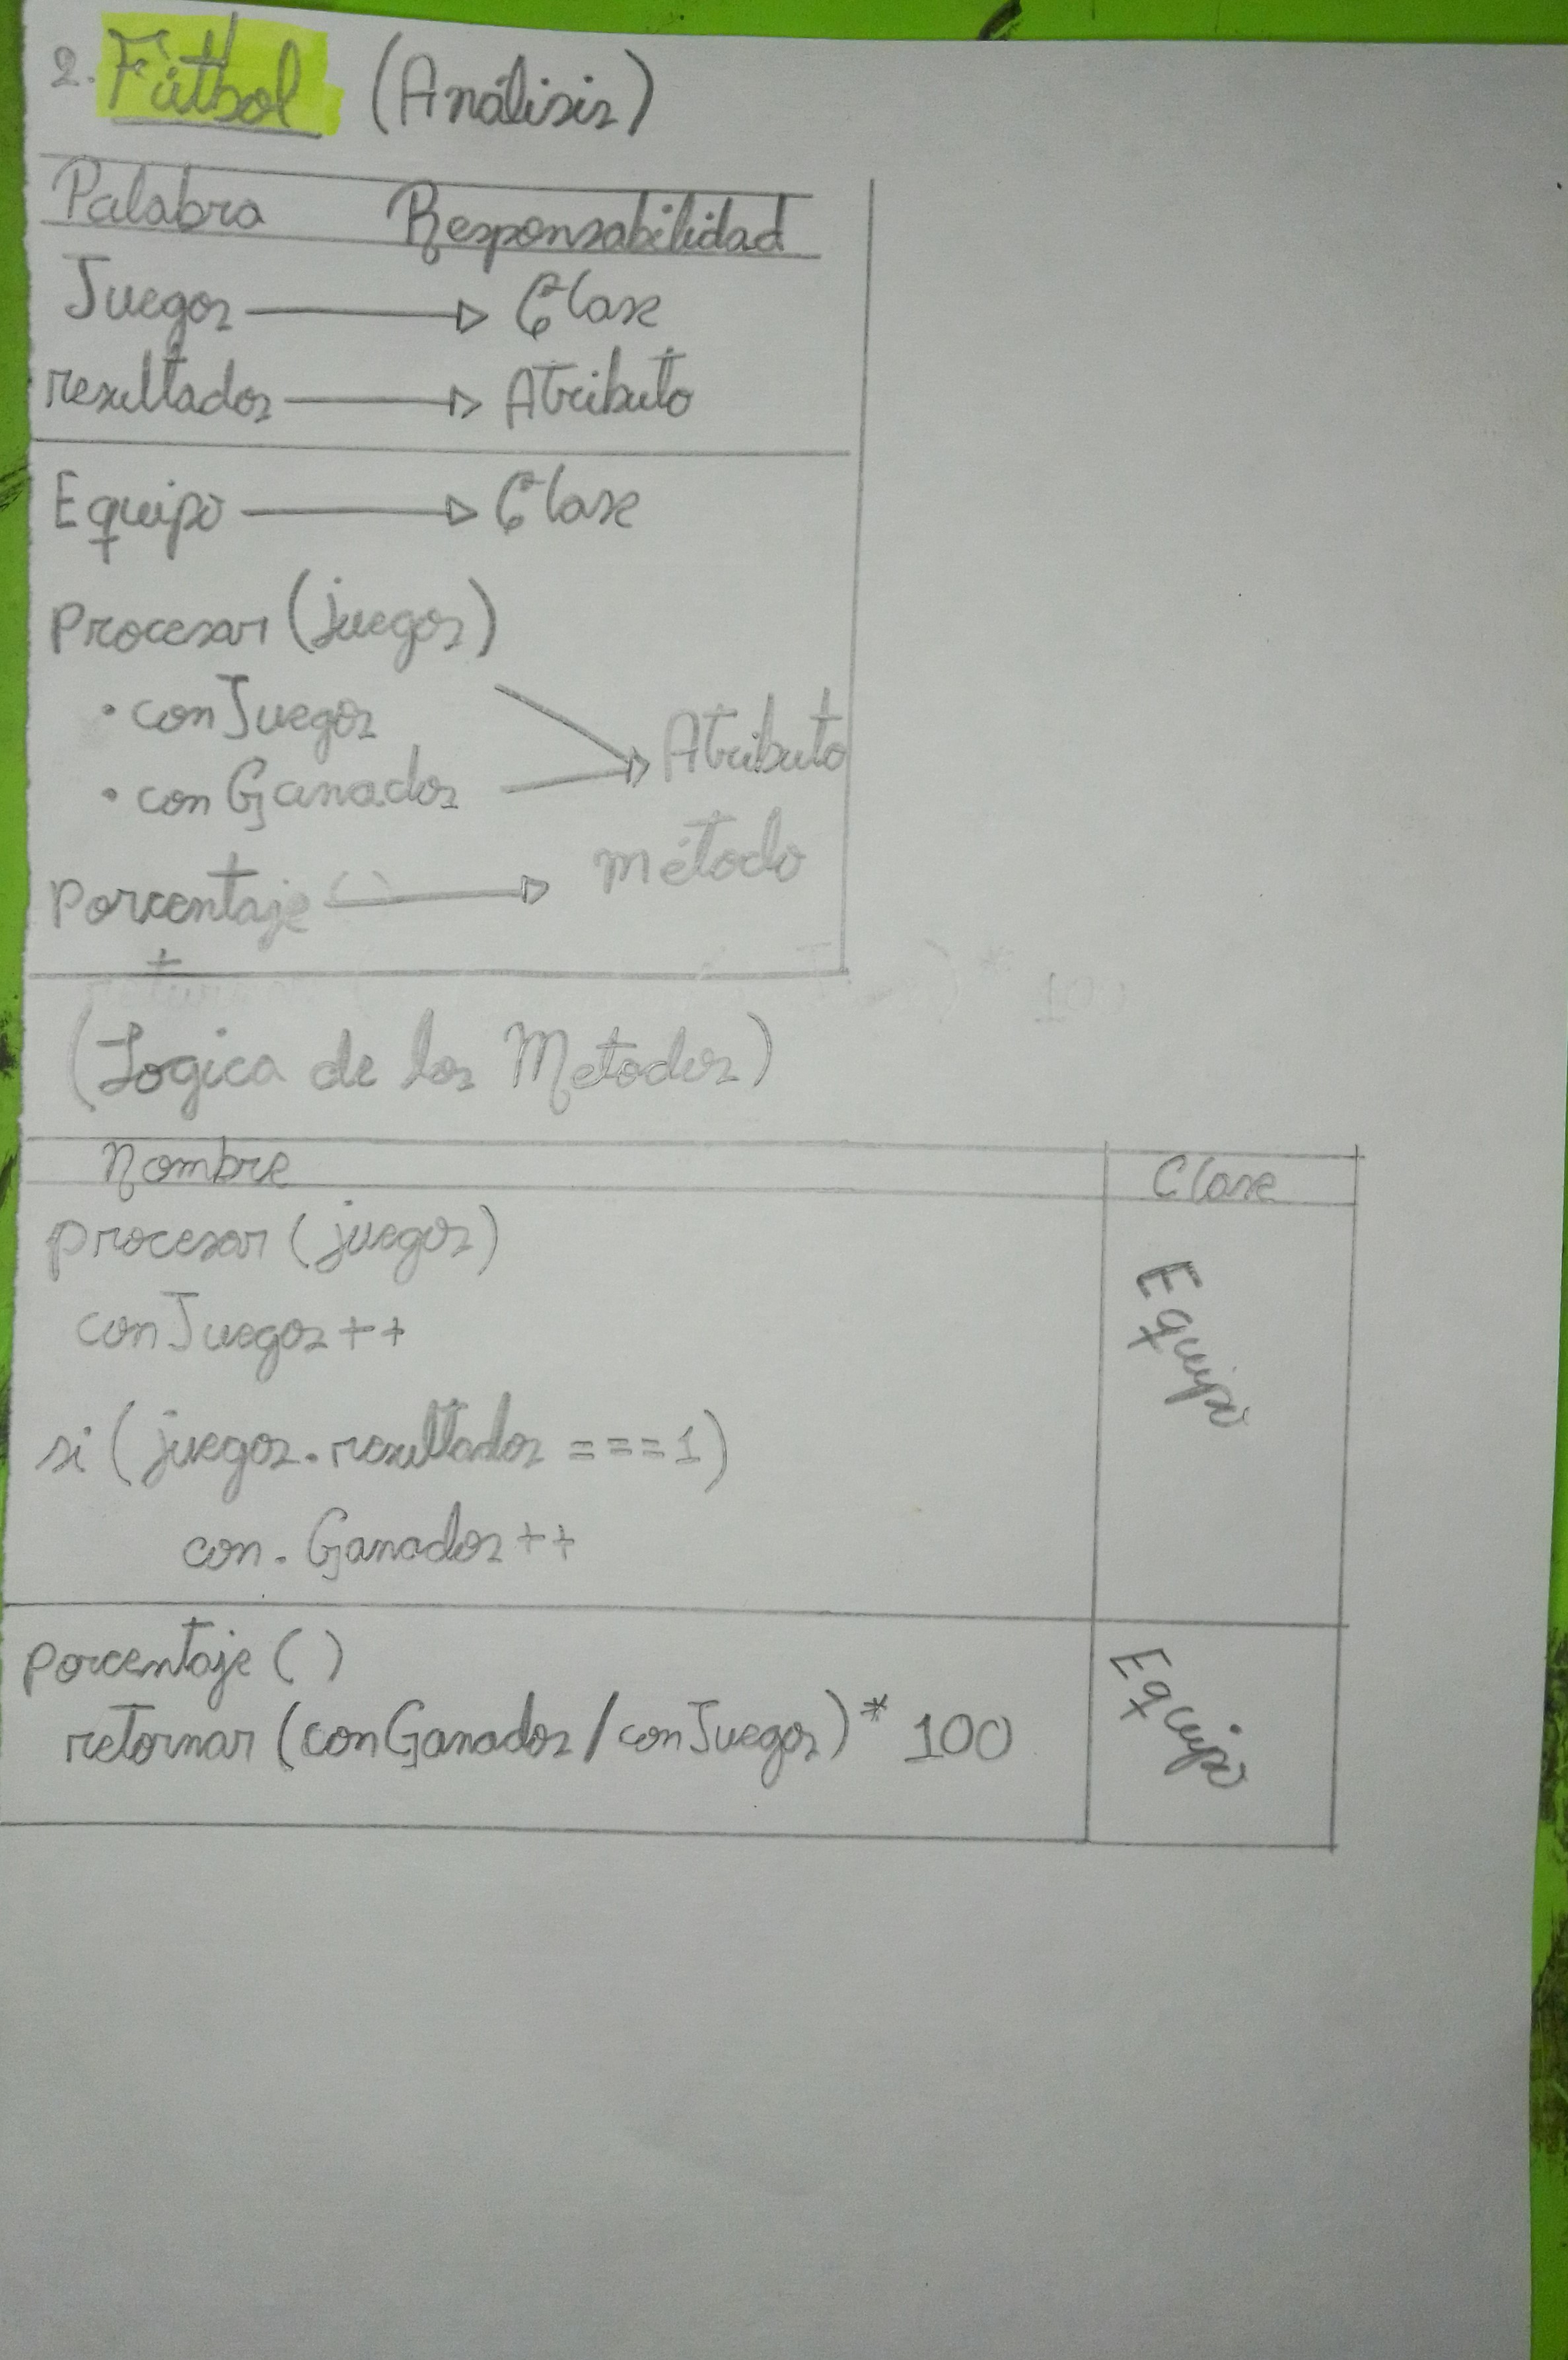 2. Fútbol (Análisis)
Palabra Responsabilidad
Juegos Clase
resultados Atributo
Equipo Clase
Procesar (juegos)
• conJuegos
• conGanados Atributo
Porcentaje () método
(Logica de los Metodos)
Nombre Clase
Procesar (juegos) Equipo
conJuegos++
si (juegos.resultados === 1)
con.Ganados++
Porcentaje () Equipo
retornar (conGanados/conJuegos) * 100